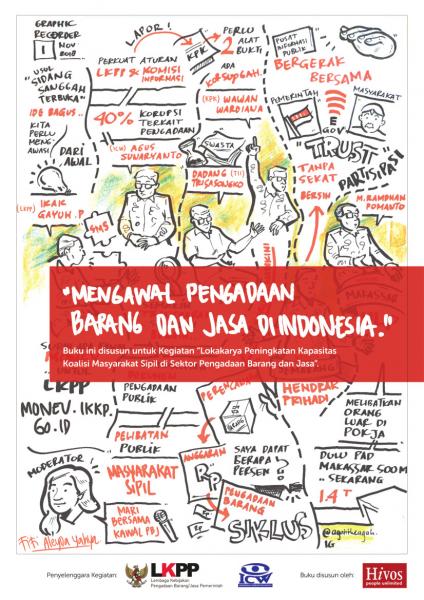 GRAPHIC
RECORDER
1
NOV
2018
LAPOR!
KPK
PERLU
2 ALAT
BUKTI
PUSAT
INFORMASI
PUBLIK
USUL
"SIDANG
SANGGAH
TERBUKA"
IDE BAGUS..
PERKUAT ATURAN
LKPP & KOMISI
INFORMASI
ADA
KORSUPGAH.
BERGERAK
BERSAMA
KITA
PERLU
MENG
AWASI
DARI
AWAL
40% KORUPSI
TERKAIT
PENGADAAN
(KPK) WAWAN
WARDIANA
PEMERINTAH
MASYARAKAT
E
GOV
(ICW) AGUS
SUNARYANTO
SWASTA
TRUST
PARTISIPASI
DADANG (TII)
TRISASONGKO
TANPA
SEKAT
BERSIH
(LKPP) IKAK
GAYUH.P
SMS
M.RAMDHAN
POMANTO
"MENGAWAL PENGADAAN
BARANG DAN JASA DI INDONESIA."
Buku ini disusun untuk Kegiatan "Lokakarya Peningkatan Kapasitas
Koalisi Masyarakat Sipil di Sektor Pengadaan Barang dan Jasa".
LKPP
MONEV.LKKP.
GO.ID
PENGADAAN
PUBLIK
HENDRAR
PRIHADI
MELIBATKAN
ORANG
LUAR DI
POKJA
PELIBATAN
PUBLIK
ANGGARAN
RP
SAYA DAPAT
BERAPA
PERSEN?
DULU PAD
MAKASSAR 500 M
→ SEKARANG
1.4 T
MODERATOR
MASYARAKAT
SIPIL
PENGADAAN
BARANG
MARI
BERSAMA
KAWAL PBJ
Rp
SIKLUS
Fifi Aleyda Yahya
IG
Penyelenggara Kegiatan:
LKPP
Lembaga Kebijakan
Pengadaan Barang/Jasa Pemerintah
ICW
Buku disusun oleh:
Hivos
people unlimited